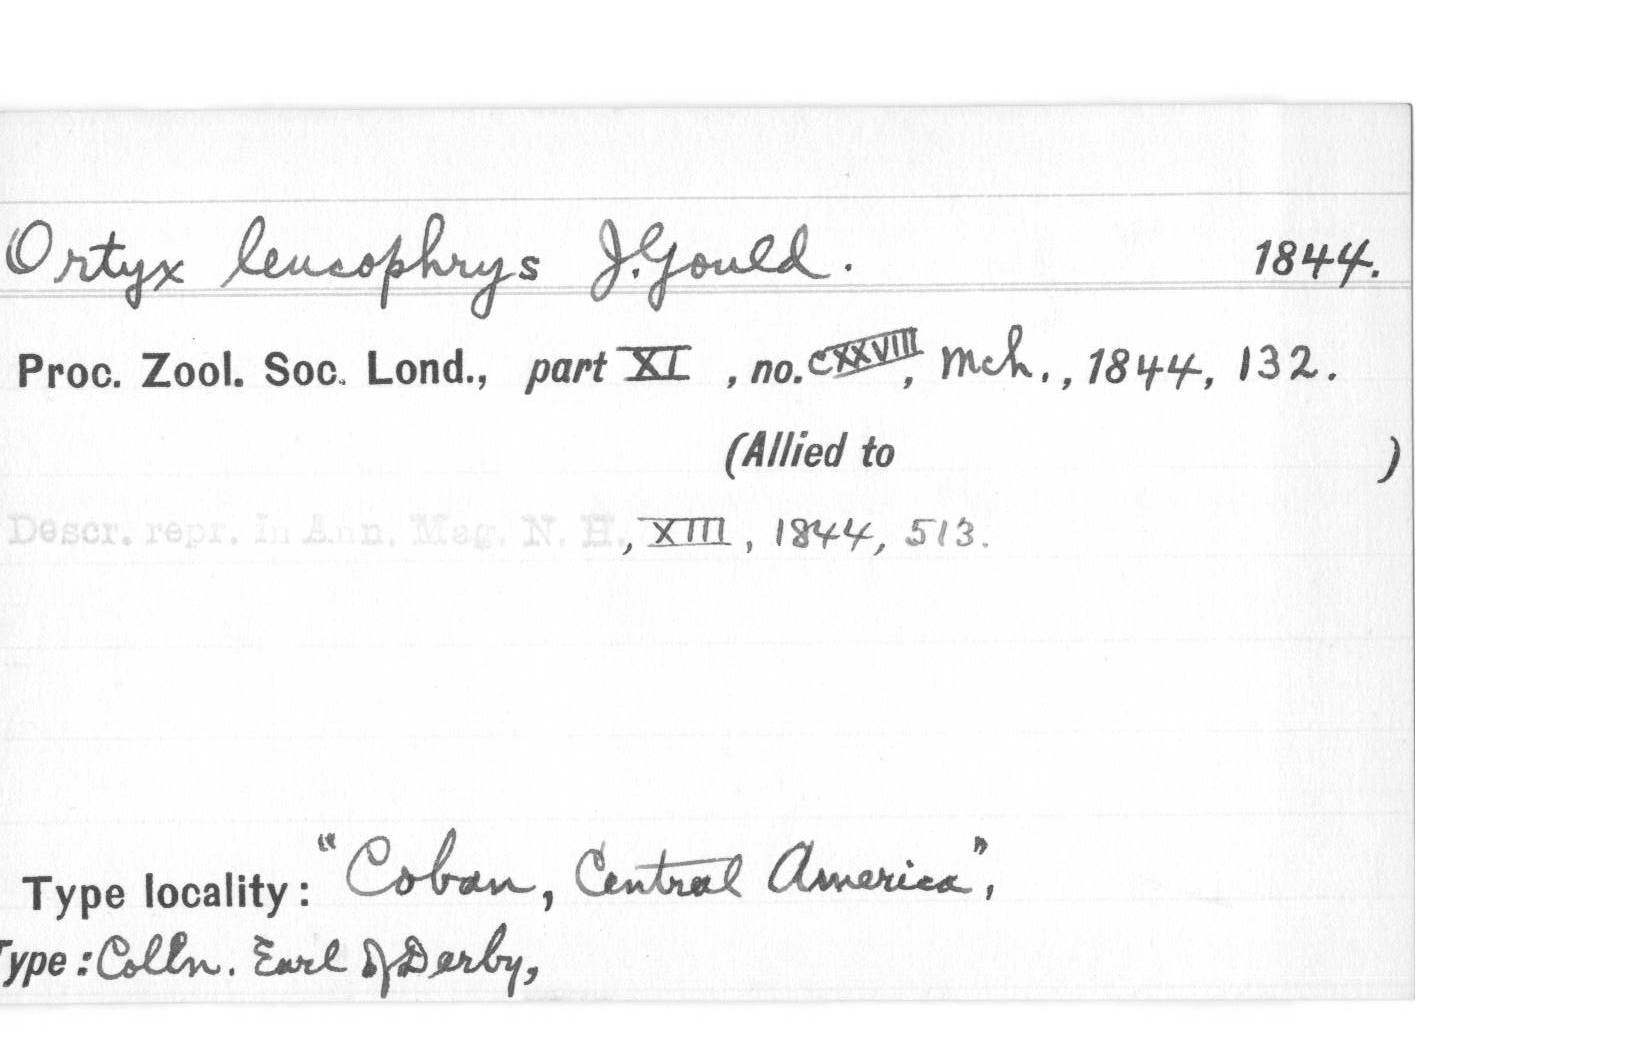 Ortyx leucophrys J. Gould. 1844.
Proc. Zool. Soc. Lond., part XI , no. CXXVIII, Mch. , 1844, 132.
(Allied to )
Descr. repr. in Ann. Mag. N. H., XIII, 1844, 513.
Type locality: "Coban, Central America",
Type: Colln. Earl of Derby,